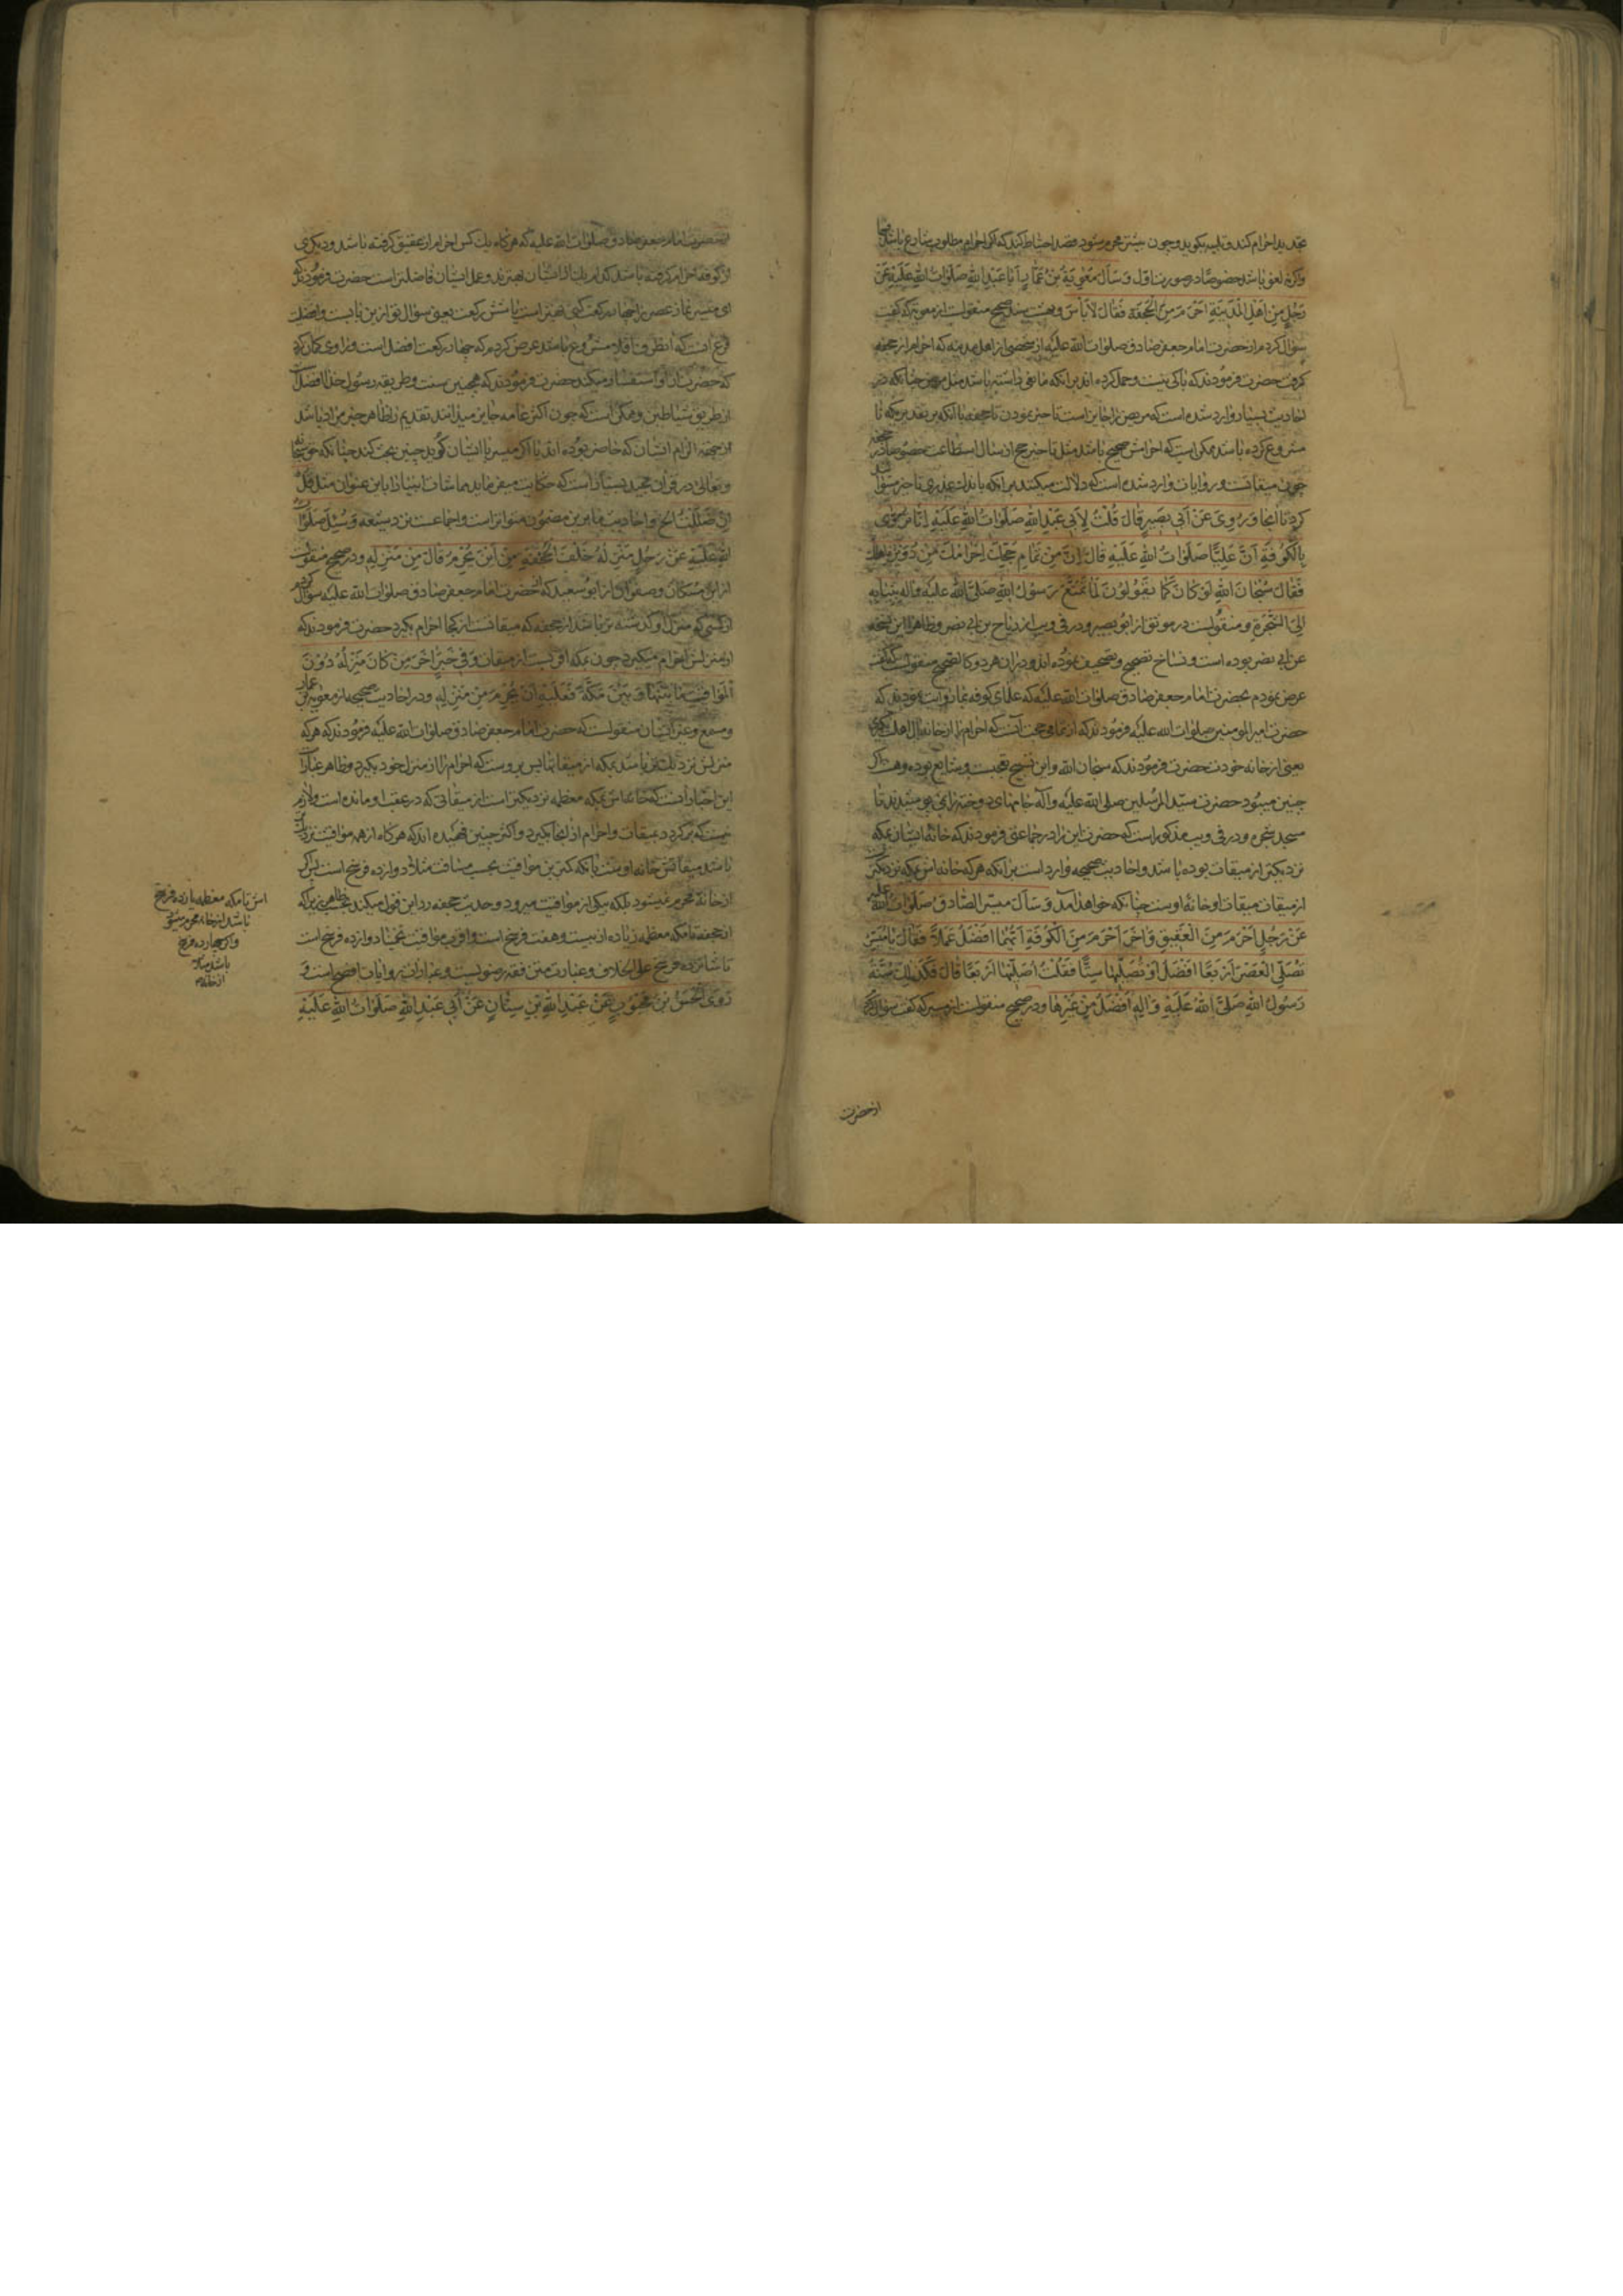 تجدید احرام کند و تلبیه بگوید و چون بیشتر محرم میشود قصد احتیاط کند که اگر احرام مطلوب شارع باشد
واکر نه لغو باشد خصوصا در صورت اول وَسَأَلَ مُعٰوِیَةُ بْنُ عَمَّارٍ أَبَا عَبْدِ اللهِ صَلَوَاتُ اللهِ عَلَیْهِ عَنْ
رَجُلٍ مِنْ اَهْلِ الْمَدِینَةِ اَحْرَمَ مِنَ الْجُحْفَةِ فَقَالَ لَا بَأْسَ و بهشت سند صحیح منقولست از معویه که گفت
سؤال کردم از حضرت امام جعفر صادق صلوات الله علیه از شخصی از اهل مدینه که احرام از جحفه
کرفت حضرت فرمودند که باکی نیست و حمل کرده اند بر انکه مانعی داشته باشد مثل مرض چنانکه در
احادیث بسیار وارد شده است که مریض را جایز است تاخیر نمودن تا جحفه یا آنکه بر تقدیری که نا
مشروع کرده باشد ممکن است که احرامش صحیح باشد مثل تاخیر حج از سال استطاعت خصوصا در جحفه
چون میقاتست و روایات وارد شده است که دلالت میکند بر آنکه باندک عذری تاخیر میتواند
کرد تا آنجا وَرُوِیَ عَنْ أَبِی بَصِیرٍ قَالَ قُلْتُ لِأَبِی عَبْدِ اللهِ صَلَوَاتُ اللهِ عَلَیْهِ إِنَّا نُرْوَی
بِالْکُوفَةِ أَنَّ عَلِیًّا صَلَوَاتُ اللهِ عَلَیْهِ قَالَ إِنَّ مِنْ تَمَامِ حَجِّكَ إِحْرَامَكَ مِنْ دُوَیْرَةِ أَهْلِكَ
فَقَالَ سُبْحَانَ اللهِ لَوْ کَانَ کَمَا یَقُولُونَ لَمَا تَمَتَّعَ رَسُولُ اللهِ صَلَّی اللهُ عَلَیْهِ وَآلِهِ بِثِیَابِهِ
إِلَی الشَّجَرَةِ و منقولست در موثق از ابو بصیر و در قوی از رباح بن ابی نصر و ظاهرا این نسخه
عن ابی نصر بوده است و نساخ تصحیح و تصحیف نموده اند و در ان هر دو کالصحیح منقولست که گفت
عرض نمودم بحضرت امام جعفر صادق صلوات الله علیه که علمای کوفه بما روایت نمودند که
حضرت امیر المومنین صلوات الله علیه فرمودند که از تمامی حجت آنست که احرام را از خانه اهلت بگیری
یعنی از خانه خودت حضرت فرمودند که سبحان الله و این تسبیح تعجبست و شایع بوده و هست اگر
چنین میبود حضرت سید المرسلین صلی الله علیه و آله جامهای دوخته را نمی پوشیدند تا
مسجد شجره و در قوی مذکور است که حضرت این را در جماعتی فرمودند که خانه ایشان بمکه
نزدیکتر از میقات بوده باشد و احادیث صحیحه وارد است بر آنکه هر که خانه اش بمکه نزدیکتر
از میقات میقات او خانه اوست چنانکه خواهد آمد وَسَأَلَ مُیَسِّرٌ الصَّادِقَ صَلَوَاتُ اللهِ علیه
عَنْ رَجُلٍ أَحْرَمَ مِنَ الْعَقِیقِ وَآخَرَ أَحْرَمَ مِنَ الْکُوفَةِ أَیُّهُمَا أَفْضَلُ عَمَلًا فَقَالَ یَا مُیَسِّرُ
تُصَلِّی الْعَصْرَ أَرْبَعًا أَفْضَلُ أَوْ تُصَلِّیهَا سِتًّا فَقُلْتُ أُصَلِّیهَا أَرْبَعًا قَالَ فَکَذٰلِكَ سُنَّةُ
رَسُولِ اللهِ صَلَّی اللهُ عَلَیْهِ وَآلِهِ أَفْضَلُ مِنْ غَیْرِهَا و در صحیح منقولست از میسر که گفت سؤال کردم
از حضرت
از حضرت امام جعفر صادق صلوات الله علیه که هر گاه یک کس احرام از عقیق کرفته باشد و دیکری
از کوفه احرام کرفته باشد کدام یک از ایشان بهترند و عمل ایشان فاضلتر است حضرت فرمودند که
ای میسر نماز عصر را چهار رکعت کنی بهتر است یا شش رکعت یعنی سؤال تو از این بابست و افضلیت
فرع آنست که آنطرف اقلا مشروع باشد عرض کردم که چهار رکعت افضل است و راوی کمان کرد
که حضرت از او استفسار میکند حضرت فرمودند که همچنین سنت و طریقه رسول خدا افضلست
از طریق شیاطین و ممکن است که چون اکثر عامه جایز میدانند تقدیم را ظاهر خبر مراد باشد
از جهة الزام ایشان که حاضر بوده اند یا اکر میسر با ایشان کوید چنین بحث کند چنانکه حق سبحانه
و تعالی در قرآن مجید بسیار است که حکایت میفرماید مماشات انبیا را باین عنوان مثل قُلْ
إِنْ ضَلَلْتُ الخ و احادیث ما برین مضمون متواتر است و اجماعست نزد شیعه وَسُئِلَ صَلَوَاتُ
اللهِ عَلَیْهِ عَنْ رَجُلٍ مَنْزِلُهُ خَلْفَ الْجُحْفَةِ مِنْ أَیْنَ یُحْرِمُ قَالَ مِنْ مَنْزِلِهِ و در صحیح منقولست
از ابن مسکان و صفوان از ابو سعید که از حضرت امام جعفر صادق صلوات الله علیه سؤال کردم
از کسی که منزل او کذشته تر باشد از جحفه که میقاتست از کجا احرام بکیرد حضرت فرمودند که
از منزلش احرام میکیرد چون بمکه اقربست از میقات وَفِی خَبَرٍ آخَرَ مَنْ کَانَ مَنْزِلُهُ دُونَ
الْمَوَاقِیتِ مَا بَیْنَهَا وَبَیْنَ مَکَّةَ فَعَلَیْهِ أَنْ یُحْرِمَ مِنْ مَنْزِلِهِ و در احادیث صحیحه از معویة بن عمار
و مسمع و غیر ایشان منقولست که حضرت امام جعفر صادق صلوات الله علیه فرمودند که هر که
منزلش نزدیک تر باشد بمکه از میقاتها پس بروست که احرام را از منزل خود بکیرد و ظاهر عبارات
این اخبار آنست که خانه اش بمکه معظمه نزدیکتر است از میقاتی که در عقب او مانده است و لازم
نیست که برکردد بمیقات و احرام از آنجا بکیرد و اکثر چنین فهمیده اند که هر گاه از همه مواقیت نزدیک تر
باشد میقاتش خانه اوست یا بمکه کمترین مواقیت بحسب مسافت مثلا دوازده فرسخ است پس اکر
از خانه محرم نمیشود بلکه یکی از مواقیت میرود و حدیث جحفه رد این قول میکند بحسب ظاهر زیرا که
از جحفه تا مکه معظمه زیاده از بیست و هفت فرسخ است و اقرب مواقیت تخمینا دوازده فرسخ است
تا شانزده فرسخ علی الخلاف و عبارت متن فقه رضویست و عبارات روایات اوضح است وَ
رَوَی الْحَسَنُ بْنُ مَحْبُوبٍ عَنْ عَبْدِ اللهِ بْنِ سِنَانٍ عَنْ أَبِی عَبْدِ اللهِ صَلَوَاتُ اللهِ عَلَیْهِ
اش تا مکه معظمه یازده فرسخ
باشد از خانه محرم میشود
و اکر چهارده فرسخ
باشد مثلا
از خانه